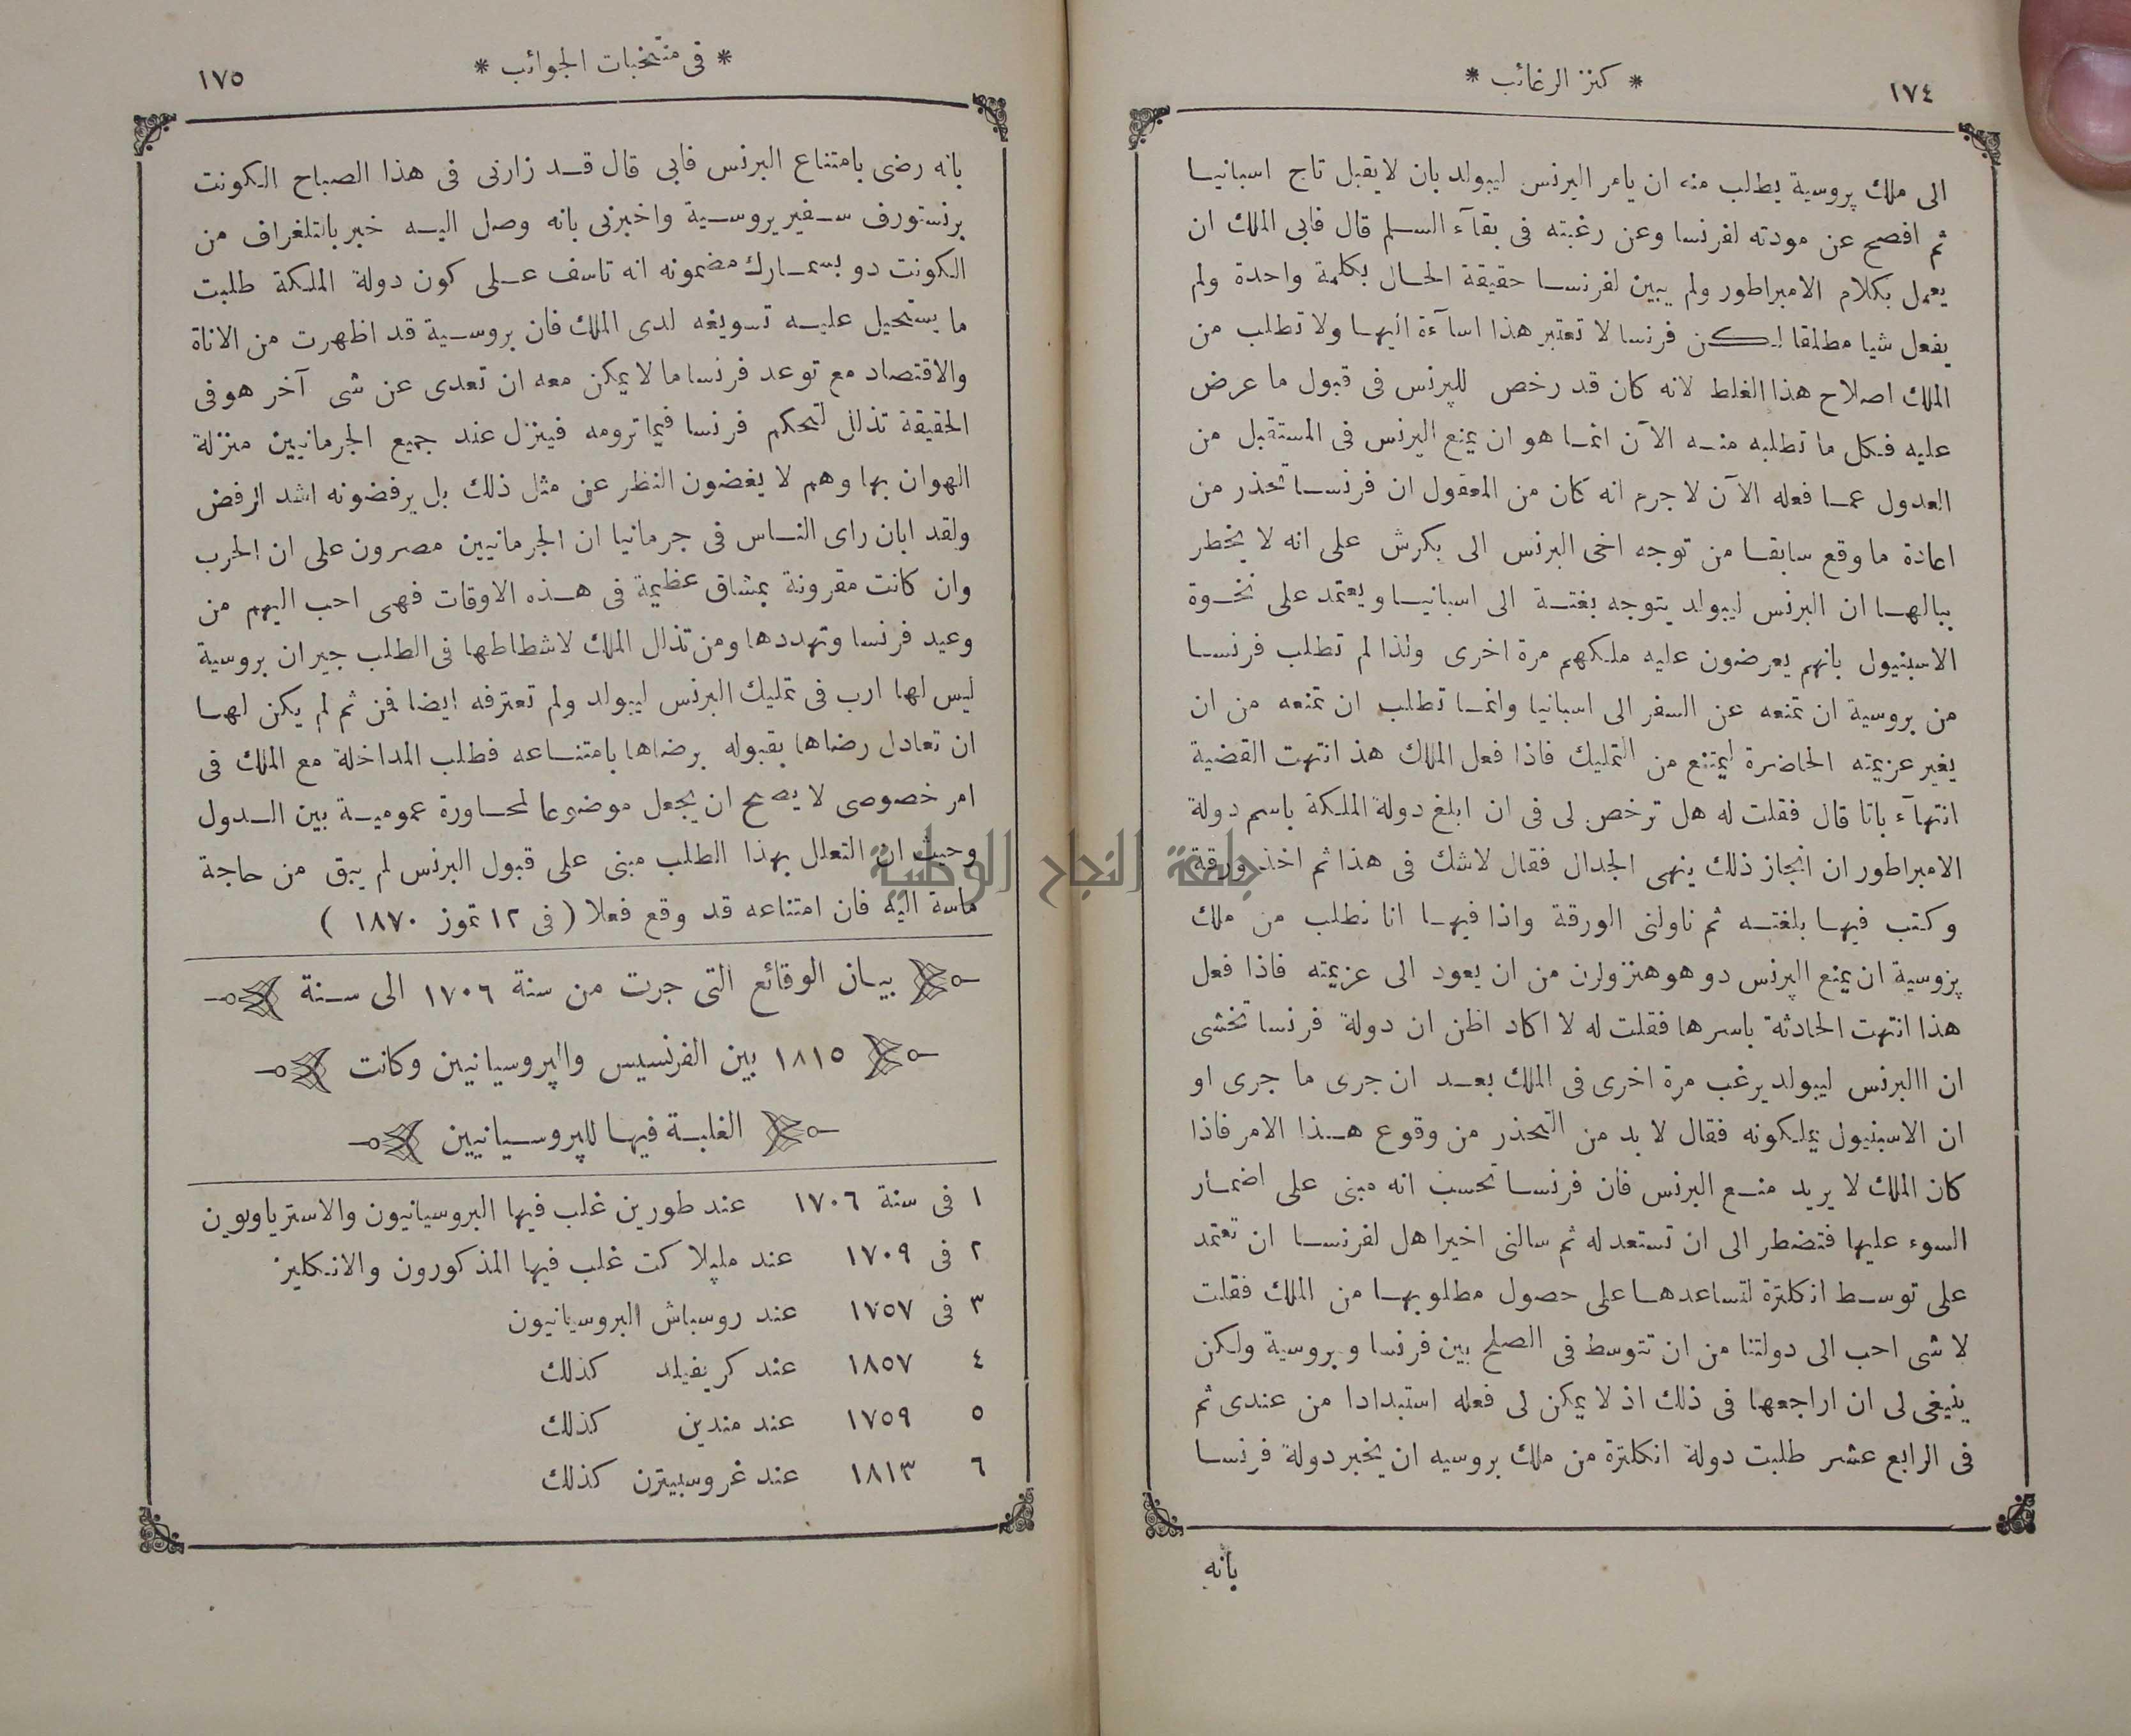 ١٧٤
* كنز الرغائب *
الى ملك پروسية يطلب منه ان يامر البرنس ليبولد بان لايقبل تاج اسبانيا
ثم افصح عن مودته لفرنسا وعن رغبته فى بقآء السلم قال فابى الملك ان
يعمل بكلام الامبراطور ولم يبين لفرنسا حقيقة الحال بكلمة واحدة ولم
يفعل شيا مطلقا لكن فرنسا لا تعتبر هذا اسآءة اليها ولا تطلب من
الملك اصلاح هذا الغلط لانه كان قد رخص للپرنس فى قبول ما عرض
عليه فكل ما تطلبه منه الآن انما هو ان يمنع البرنس فى المستقبل من
العدول عما فعله الآن لا جرم انه كان من المعقول ان فرنسا تحذر من
اعادة ما وقع سابقا من توجه اخى البرنس الى بكرش على انه لا يخطر
ببالها ان البرنس ليبولد يتوجه بغتة الى اسبانيا ويعتمد على نخوة
الاسبنيول بانهم يعرضون عليه ملكهم مرة اخرى ولذا لم تطلب فرنسا
من بروسية ان تمنعه عن السفر الى اسبانيا وانما تطلب ان تمنعه من ان
يغير عزيمته الحاضرة ليمتنع من التمليك فاذا فعل الملك هذ انتهت القضية
انتهآء باتا قال فقلت له هل ترخص لى فى ان ابلغ دولة الملكة باسم دولة
الامبراطور ان انجاز ذلك ينهى الجدال فقال لاشك فى هذا ثم اخذ ورقة
وكتب فيها بلغته ثم ناولنى الورقة واذا فيها انا نطلب من ملك
پروسية ان يمنع الپرنس دو هو هنزولرن من ان يعود الى عزيمته فاذا فعل
هذا انتهت الحادثة باسرها فقلت له لا اكاد اظن ان دولة فرنسا تخشى
ان االبرنس ليبولد يرغب مرة اخرى فى الملك بعد ان جرى ما جرى او
ان الاسبنيول يملكونه فقال لا بد من التحذر من وقوع هذا الامر فاذا
كان الملك لا يريد منع البرنس فان فرنسا تحسب انه مبنى على اضمار
السوء عليها فتضطر الى ان تستعد له ثم سالنى اخيرا هل لفرنسا ان تعتمد
على توسط انكلترة لتساعدها على حصول مطلوبها من الملك فقلت
لا شى احب الى دولتنا من ان تتوسط فى الصلح بين فرنسا وبروسية ولكن
ينبغى لى ان اراجعها فى ذلك اذ لا يمكن لى فعله استبدادا من عندى ثم
فى الرابع عشر طلبت دولة انكلترة من ملك بروسيه ان يخبر دولة فرنسا
بانه
* فى منتخبات الجوائب *
١٧٥
بانه رضى بامتناع البرنس فابى قال قد زارنى فى هذا الصباح الكونت
برنستورف سفير بروسية واخبرنى بانه وصل اليه خبر بالتلغراف من
الكونت دو بسمارك مضمونه انه تاسف على كون دولة الملكة طلبت
ما يستحيل عليه تسويغه لدى الملك فان بروسية قد اظهرت من الاناة
والاقتصاد مع توعد فرنسا ما لا يمكن معه ان تعدى عن شى آخر هو فى
الحقيقة تذلل لتحكم فرنسا فيما ترومه فينزل عند جميع الجرمانيين منزلة
الهوان بها وهم لا يغضون النظر عن مثل ذلك بل يرفضونه اشد الرفض
ولقد ابان راى الناس فى جرمانيا ان الجرمانيين مصرون على ان الحرب
وان كانت مقرونة بمشاق عظيمة فى هذه الاوقات فهى احب اليهم من
وعيد فرنسا وتهددها ومن تذلل الملك لاشطاطها فى الطلب جير ان بروسية
ليس لها ارب فى تمليك البرنس ليبولد ولم تعترفه ايضا فمن ثم لم يكن لها
ان تعادل رضاها بقبوله برضاها بامتناعه فطلب المداخلة مع الملك فى
امر خصوصى لا يصح ان يجعل موضوعا لمحاورة عمومية بين الدول
وحيث ان التعلل بهذا الطلب مبنى على قبول البرنس لم يبق من حاجة
ماسة اليه فان امتناعه قد وقع فعلا ( فى ١٢ تموز ١٨٧٠ )
بيان الوقائع التى جرت من سنة ١٧٠٦ الى سنة
١٨١٥ بين الفرنسيس والپروسيانيين وكانت
الغلبة فيها للپروسيانيين
١ فى سنة ١٧٠٦ عند طورين غلب فيها البروسيانيون والاسترياويون
٢ فى ١٧٠٩ عند ملپلا كت غلب فيها المذكورون والانكليز
٣ فى ١٧٥٧ عند روسباش البروسيانيون
٤ ١٨٥٧ عند كريفيلد كذلك
٥ ١٧٥٩ عند مندين كذلك
٦ ١٨١٣ عند غروسبيترن كذلك
جامعة النجاح الوطنية